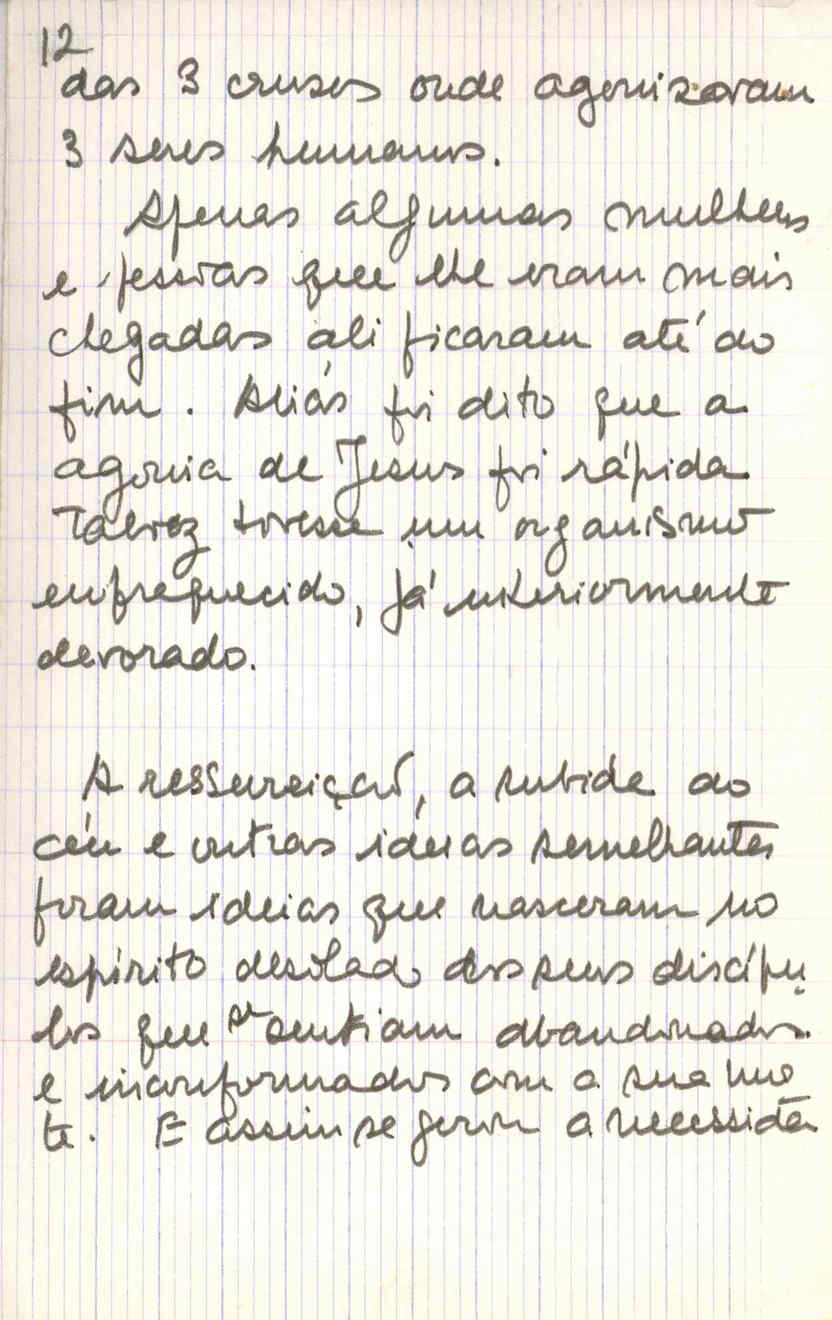 12
das 3 cruses onde agonizavam
3 seres humanos.
Apenas algumas mulheres
e pessoas que lhe eram mais
chegadas ali ficaram até ao
fim. Aliás foi dito que a
agonia de Jesus foi rápida
Talvez tivesse um organismo
enfraquecido, já interiormente
devorado.
A ressureição, a subida ao
céu e outras ideias semelhantes
foram ideias que nasceram no
espírito desolado dos seus discípu
los que se sentiam abandonados.
e inconformados com a sua mor
te. E assim se gerou a necessida